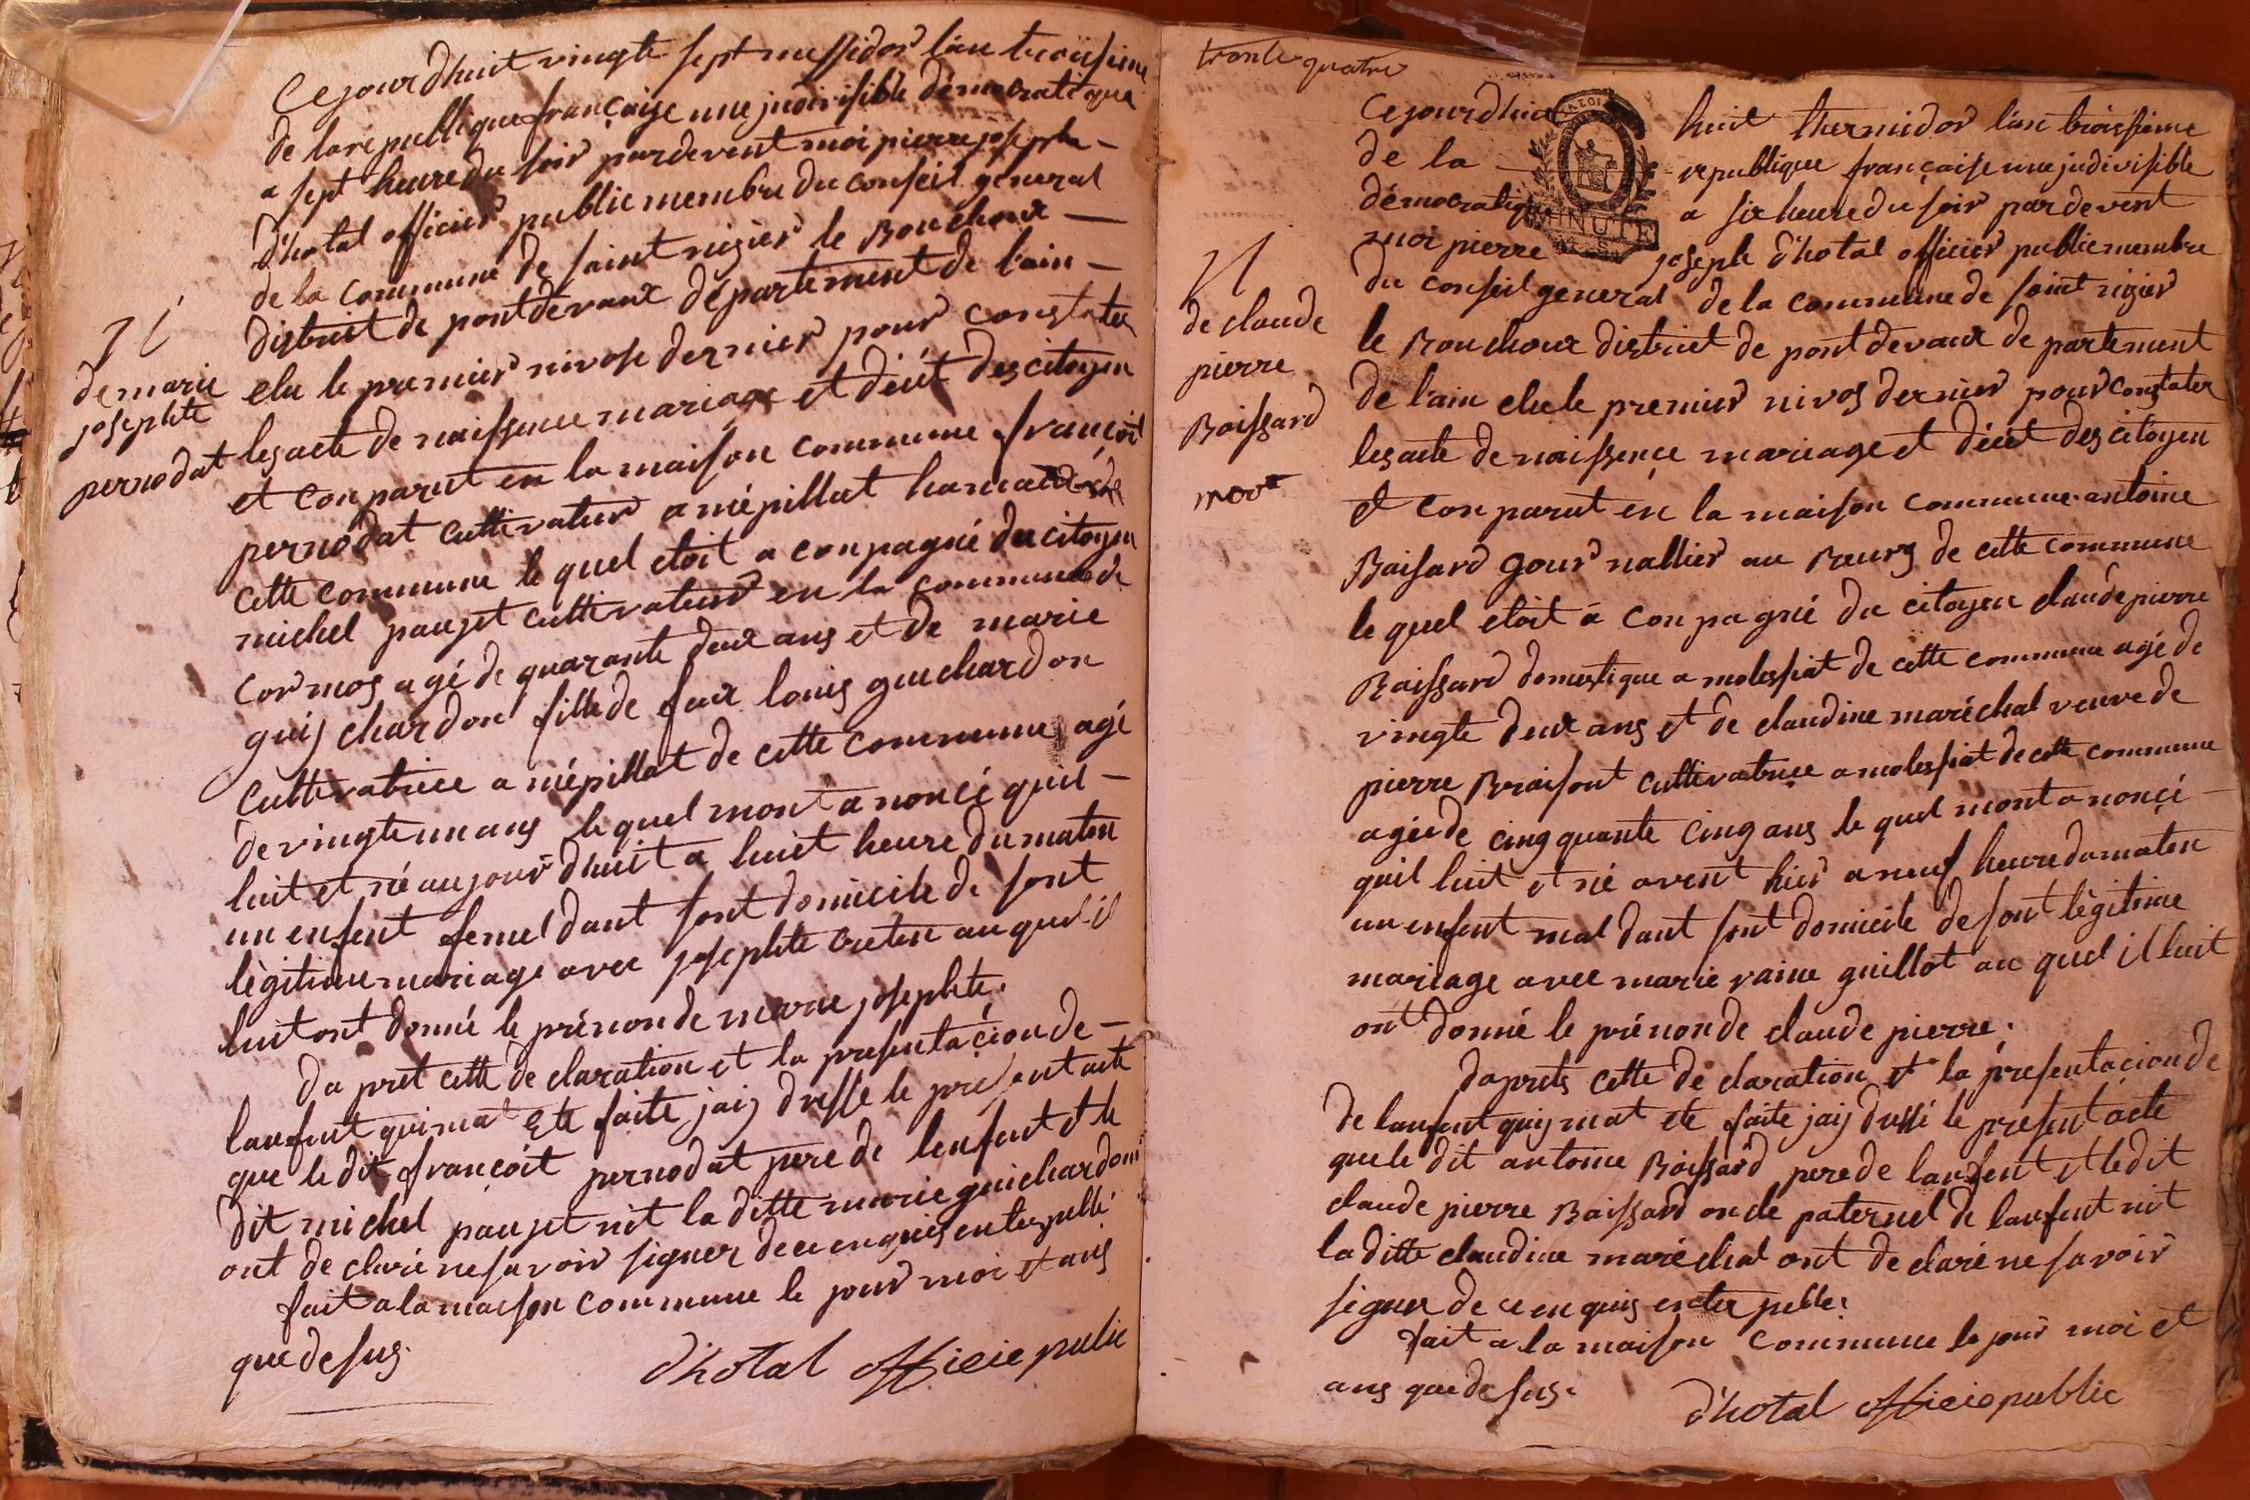 Cejourdhuit vingte sept messidor l'an troisieme
de la republique française une jndivisible démocratique
a sept heure du soir pardevent moi pierre joseph
d'hotal officier public membre du conseil general
de la commune de saint nizier le Bouchoux
district de pontdevaux département de l'ain
elu le premier nivose dernier pour constater
les acte de naissence mariage et décét des citoyen
et conparut en la maison commune françoit
pernodat cultivateur a mépillat hamau de
cette commune le quel etoit a conpagné du citoyen
michel paujet cultivateur en la commune de
cormos agé de quarante deux ans et de marie
guij chardon fille de faux louis guichardon
cultivatrice a mépillat de cette commune agé
de vingte un ans le quel mont a noncé quil
luit et né aujourdhuit a huit heure du maten
un enfent femel dant sont domicile de sont
lègitime mariage avec josephte creten au quel il
luit ont donné le prénon de marie josephte.
da pret cette de claration et la presentacion de
lanfent quimat ete faite jaij dressé le present acte
que le dit françoit pernodat pere de lenfent et le
dit michel paujet nit la ditte marie guichardon
ont de claré ne savoir signer de ce enquis enterpellé
fait a la maison commune le jour moi et ans
que desus.
d'hotal officie public
N
de marie
josephte
pernodat
trante quatre
N
de claude
pierre
Boissard
mort
Cejourdhuit huit thermidor l'an troissieme
de la republique française une jndivisible
démocratique a six heure du soir pardevent
moi pierre joseph d'hotal officier public membre
MINUTE
du conseil general de la commune de saint nizier
le Bouchoux district de pontdevaux departement
de l'ain elu le premier nivos dernier pour constater
les acte de naissence mariage et décét des citoyen
et conparut en la maison commune antoine
Baisard gournallier au Bourg de cette commune
le quel etoit a conpagné du citoyen claude pierre
Baissard domestique a molessiat de cette commune agé de
vingte deux ans et de claudine maréchal veuve de
pierre Braisont cultivatrice a molessiat de cette commune
agée de cinqquante cinq ans le quel mont a noncé
quil luit et né avent hier a neuf heure du maten
un enfent mal dant sont domicile de sont lègitime
mariage avec marie raine guillot au quel il luit
ont donné le prénon de claude pierre.
daprets cette de claration et la présentacion de
de lanfent quij mat ete faite jaij dressé le present acte
que le dit antoine Boissard pere de lanfent et le dit
claude pierre Baissard oncle paternel de lanfent nit
la ditte claudine maréchal ont declaré ne savoir
signer de ce en quis enterpellé.
fait a la maison commune le jour moi et
ans que desus.
d'hotal officie public